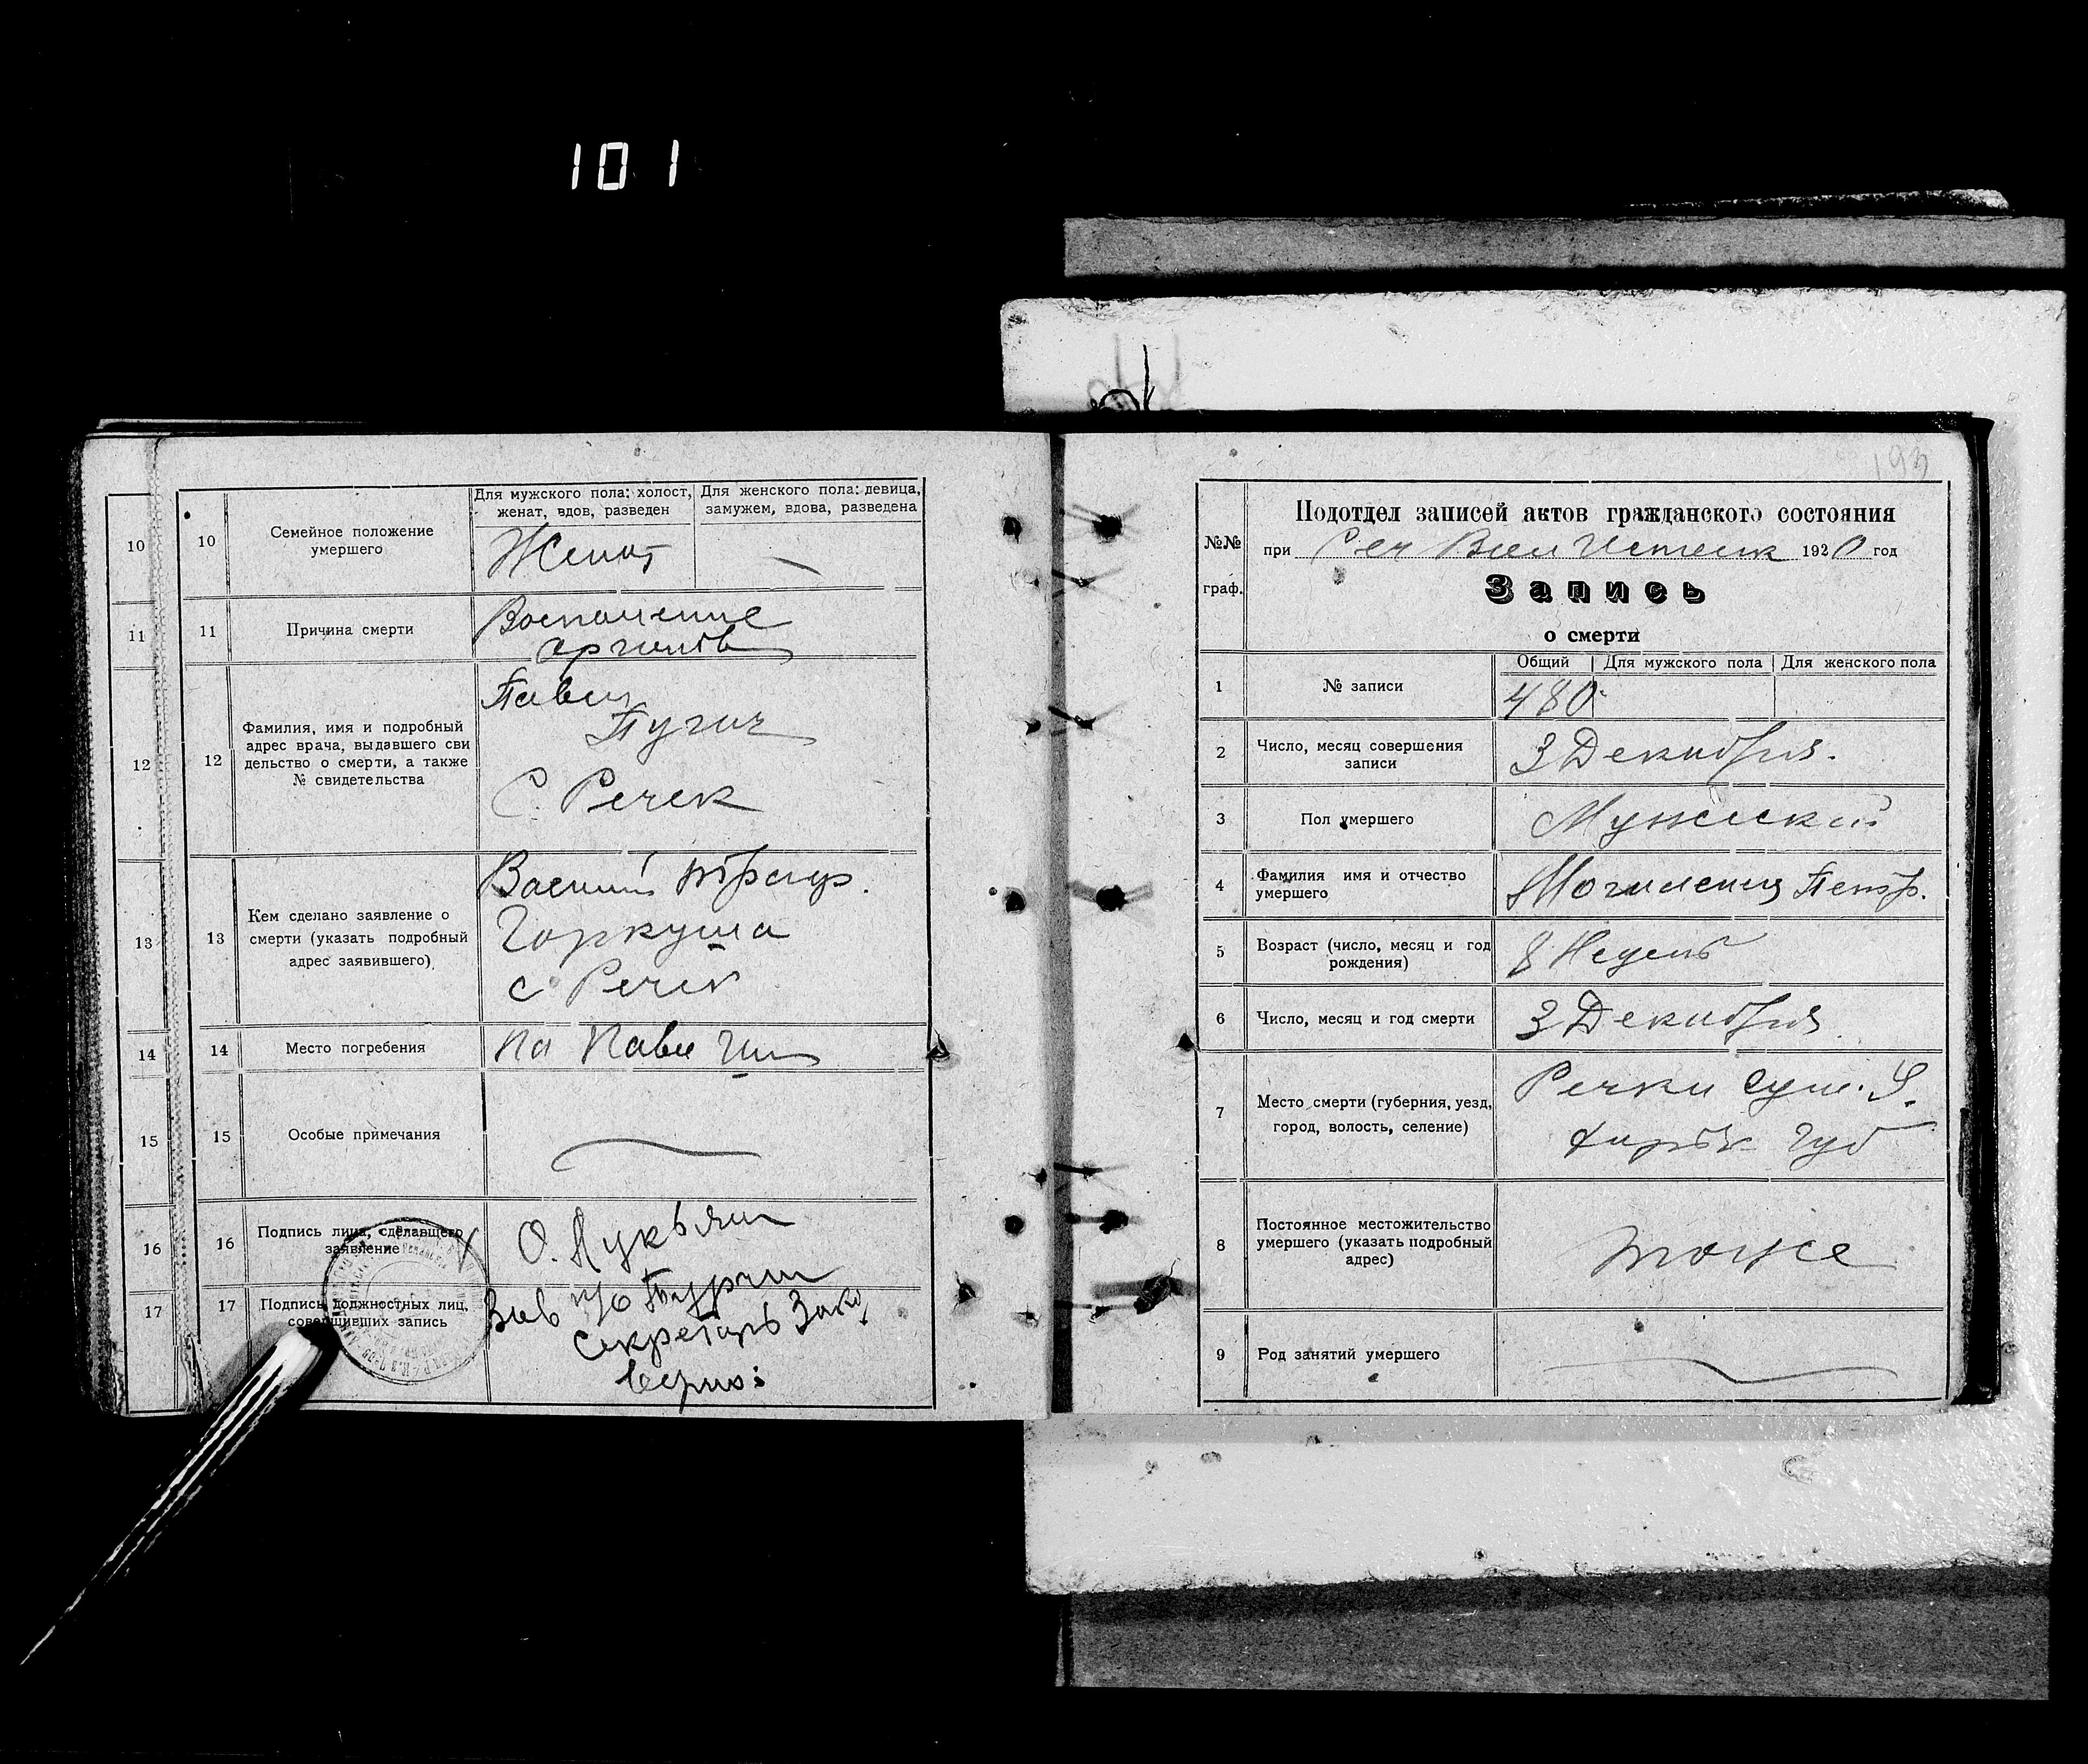 101
10
11
12
13
14
15
16
17
10
Семейное положение
умершего
Для мужского пола: холост,
женат, вдов, разведен
Для женского пола: девица,
замужем, вдова, разведена
Женат
11
Причина смерти
Воспаление
12
Фамилия, имя и подробный
адрес врача, выдавшего сви
дельство о смерти, а также
№ свидетельства
С. Речек
13
Кем сделано заявление о
смерти (указать подробный
адрес заявившего)
Василий
Горкуша
с Речек
14
Место погребения
На
15
Особые примечания
16
Подпись лица, сделавшего
заявление
О. Лукьян
17
Подпись должностных лиц,
совершивших запись
Зав п/о
Секретарь
Верно:
193
№№
граф.
Подотдел записей актов гражданского состояния
при Реч Вол 1920 год
Запись
о смерти
Общий
Для мужского пола
Для женского пола
1
№ записи
480
2
Число, месяц совершения
записи
3 Декабря.
3
Пол умершего
Мужский
4
Фамилия имя и отчество
умершего
5
Возраст (число, месяц и год
рождения)
8 Недель
6
Число, месяц и год смерти
3 Декабря
7
Место смерти (губерния, уезд,
город, волость, селение)
Речки Сум. У.
Харьк губ
8
Постоянное местожительство
умершего (указать подробный
адрес)
тоже
9
Род занятий умершего